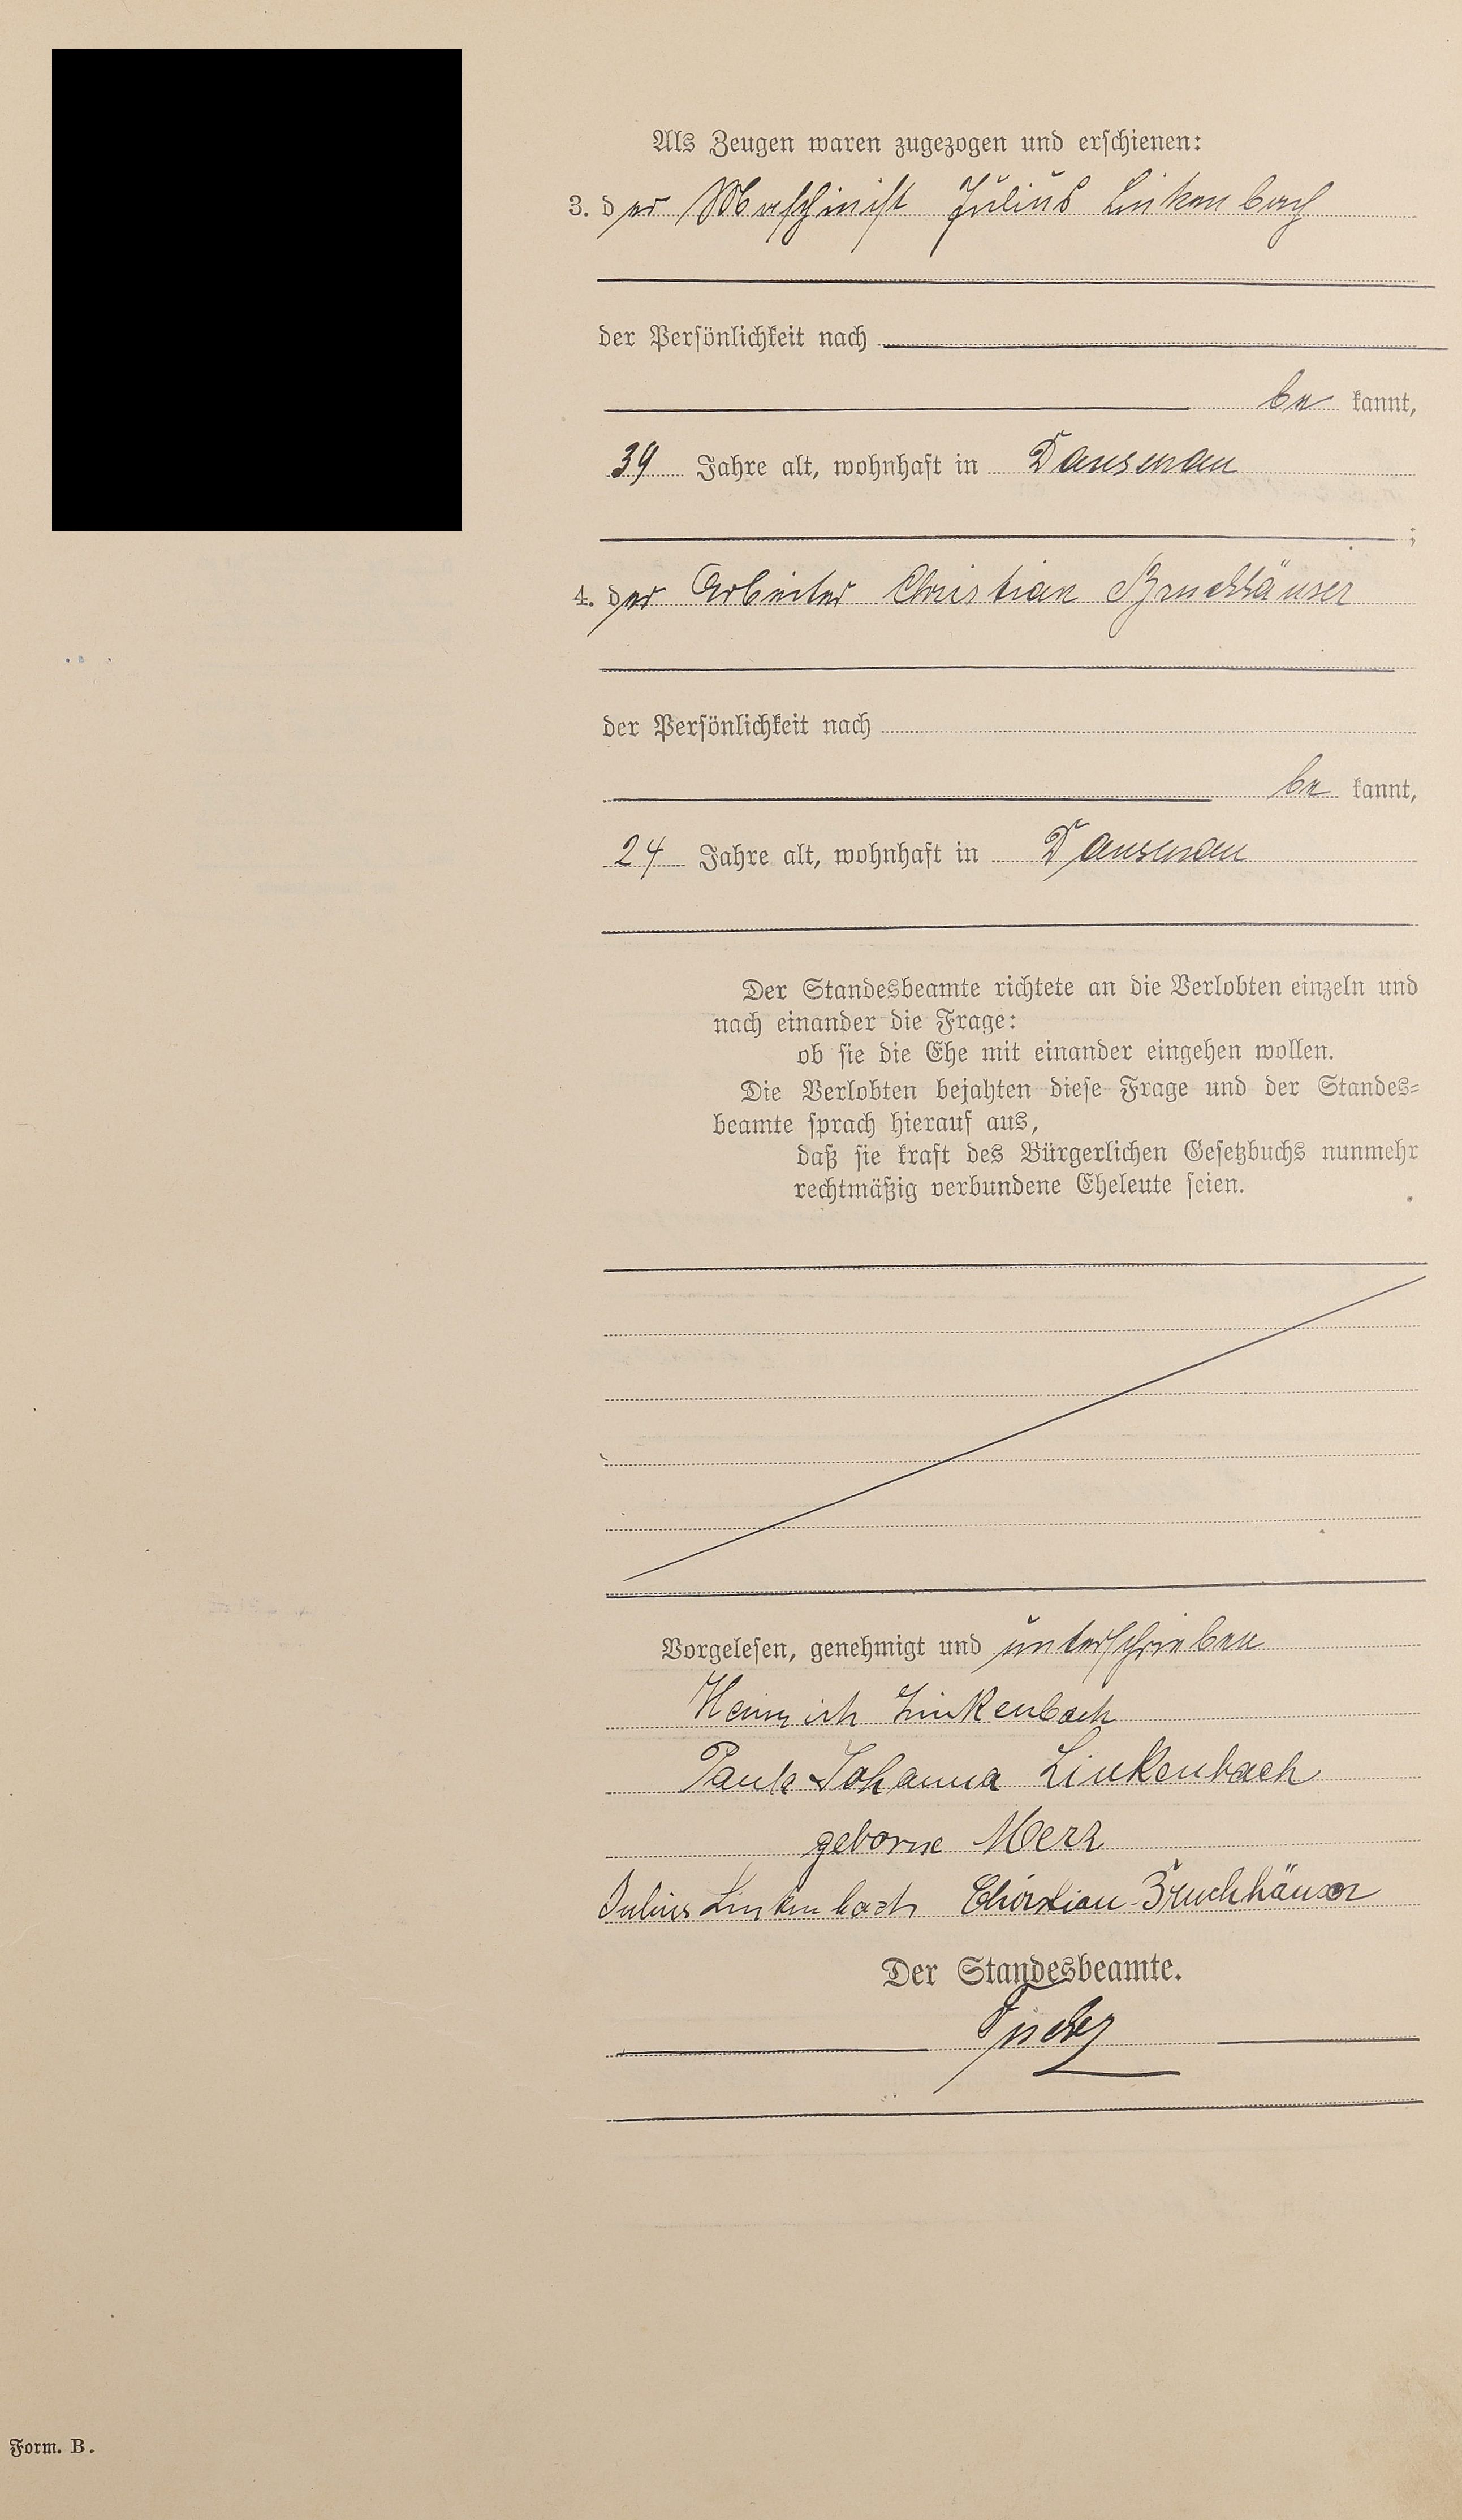 Als Zeugen waren zugezogen und erschienen:
3. der Maschinist Julius Linkenbach
der Persönlichkeit nach
be kannt,
39 Jahre alt, wohnhaft in Dausenau
;
4. der Arbeiter Christian Bruchhäuser
der Persönlichkeit nach
be kannt,
24 Jahre alt, wohnhaft in Dausenau
Der Standesbeamte richtete an die Verlobten einzeln und
nach einander die Frage:
ob sie die Ehe mit einander eingehen wollen.
Die Verlobten bejahten diese Frage und der Standes-
beamte sprach hierauf aus,
daß sie kraft des Bürgerlichen Gesetzbuchs nunmehr
rechtmäßig verbundene Eheleute seien.
Vorgelesen, genehmigt und unterschrieben
Heinrich Linkenbach
Paula Johanna Linkenbach
geborne Merz
Julius Linkenbach Christian Bruchhäuser
Der Standesbeamte.
Form. B.